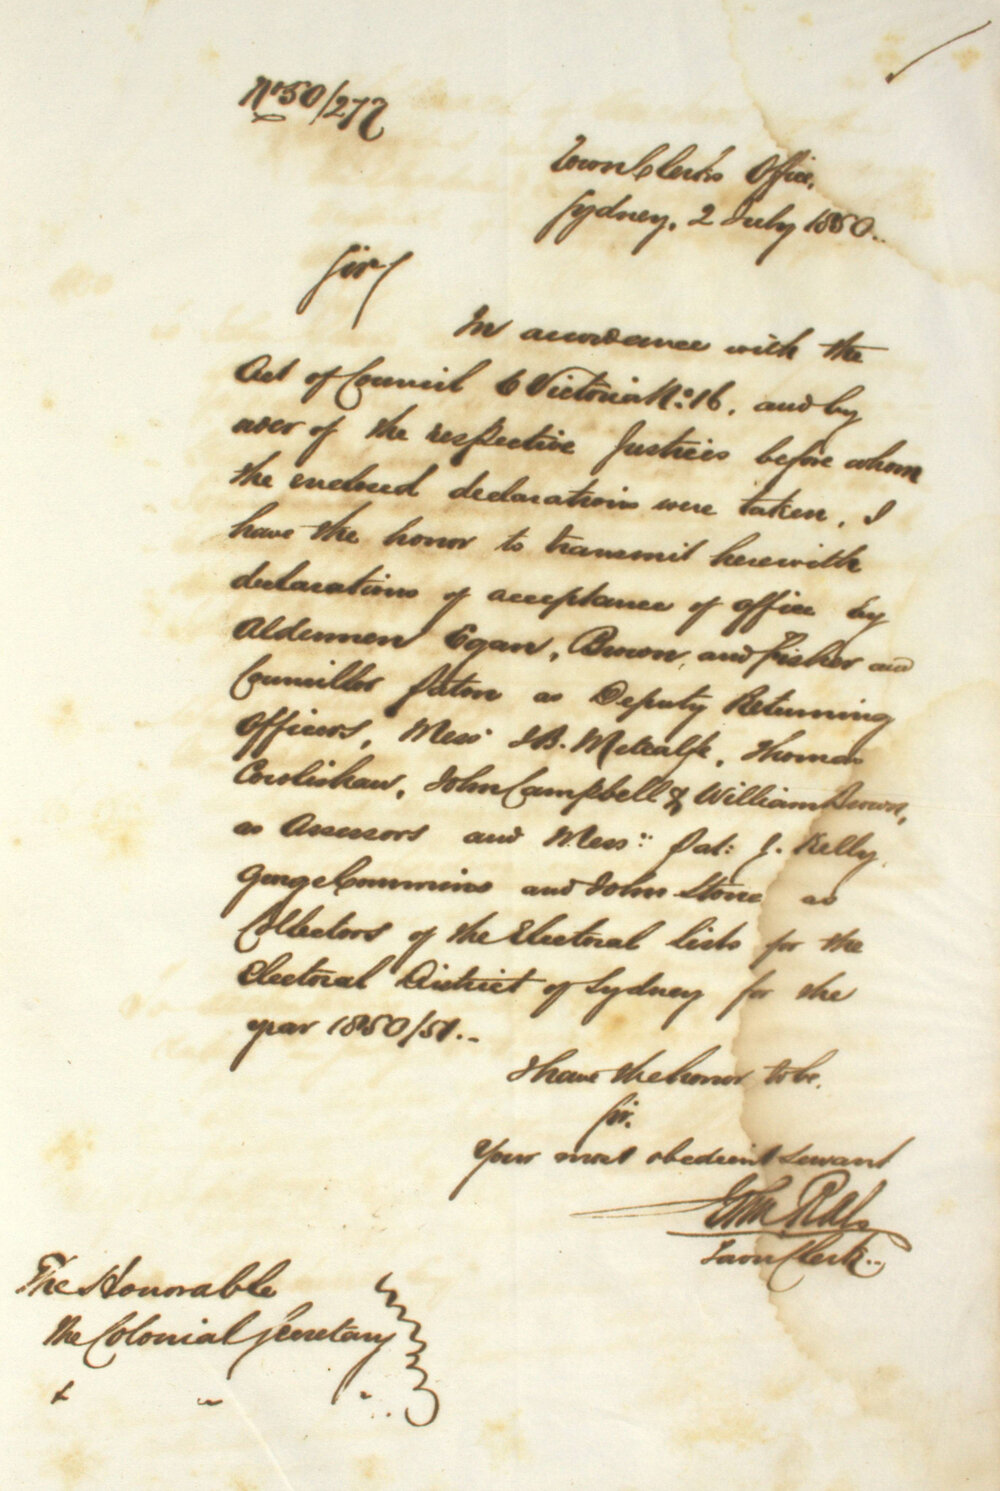 No 50/277
Town Clerk's Office,
Sydney, 2 July 1850..
Sir
In accordance with the
Act of Council 6 Victoria No: 16, and by
of the respective Justices before whom
the enclosed declarations were taken, I
have the honor to transmit herewith
declarations of acceptance of office by
Aldermen Egan, Brown, and Fisher and
Councillor Paton as Deputy Returning
Officers, Mess J.B. Metcalfe, Thomas
Cowlishaw, John Campbell & William Brown,
as Assessors and Mess: Pat: J. Kelly,
George Commins and John Stone as
Collectors of the Electoral lists for the
Electoral District of Sydney for the
year 1850/51..
I have the honor to be,
Sir,
Your most obedient servant
Town Clerk..
The Honorable
the Colonial Secretary